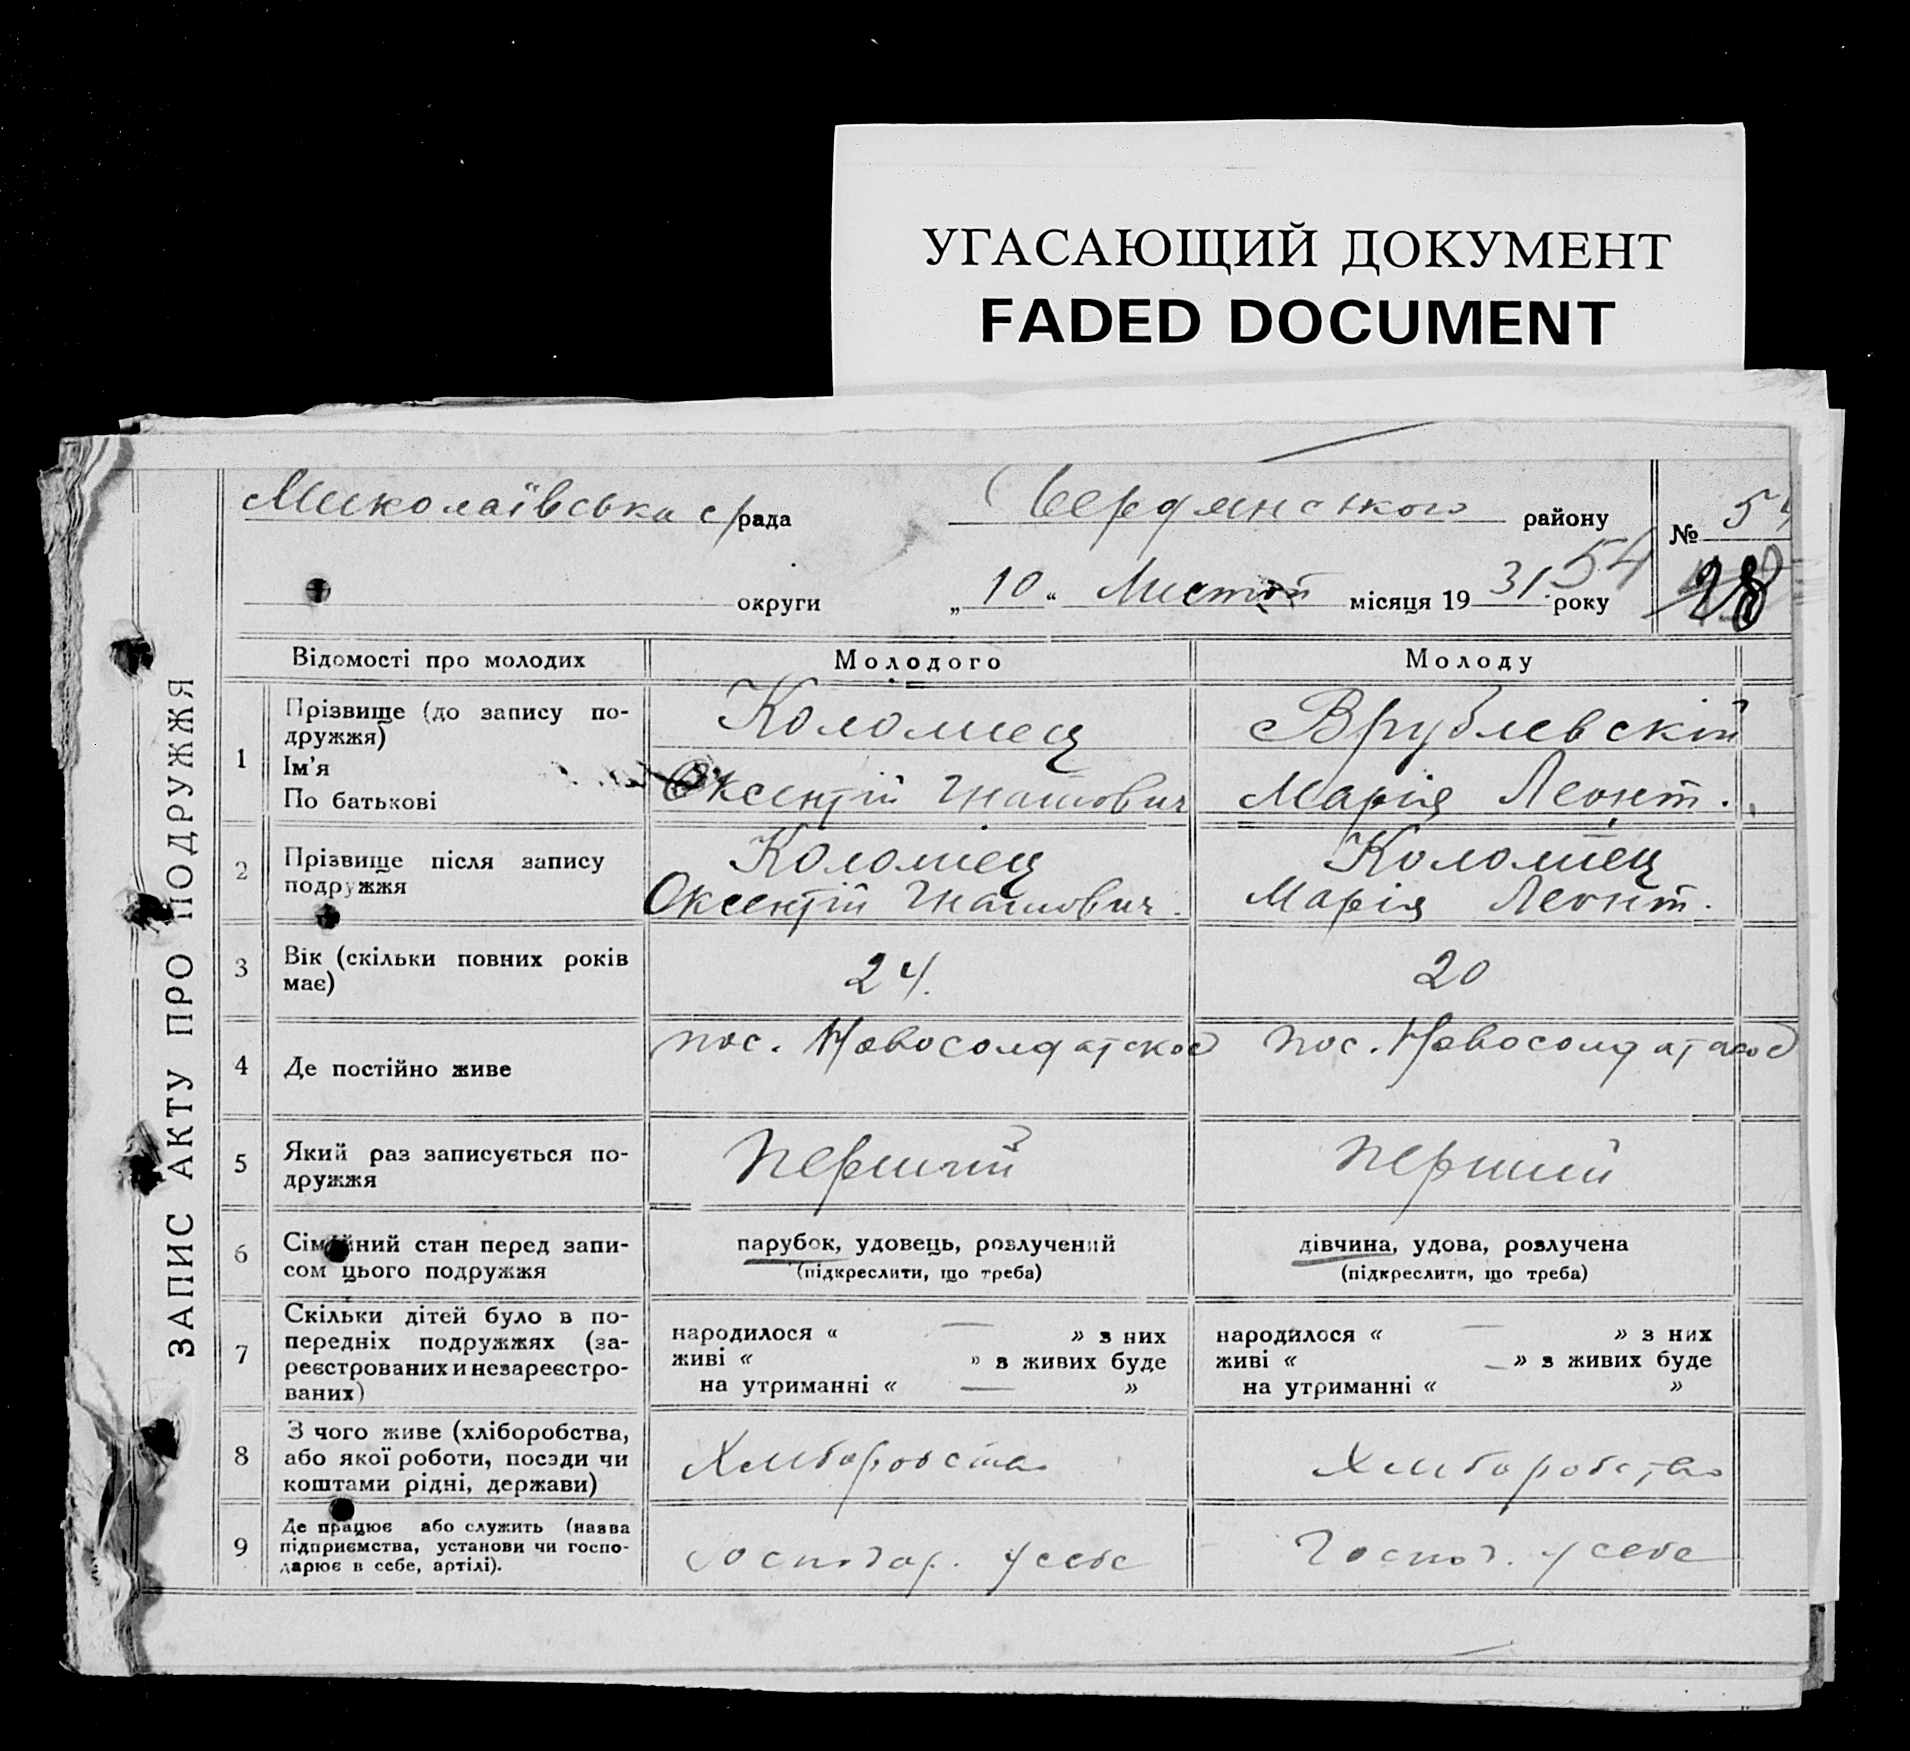 УГАСАЮЩИЙ ДОКУМЕНТ
FADED DOCUMENT
ЗАПИС АКТУ ПРО ПОДРУЖЖЯ
Миколаївська с/рада Бердянського району № 54
округи „10“ Листоп місяця 1931. року 54 28
Відомості про молодих Молодого Молоду
1 Прізвище (до запису по-
дружжя) Коломиец Врублевскій
Ім'я
По батькові Оксентій Гнатович Марія Леонт.
2 Прізвище після запису Коломіец Коломіец
подружжя Оксентій Гнатович. Марія Леонт.
3 Вік (скільки повних років 24. 20
має)
4 Де постійно живе пос. Новосолдатское пос. Новосолдатское
5 Який раз записується по- Перший Перший
дружжя
6 Сімейний стан перед запи- парубок, удовець, розлучений дівчина, удова, розлучена
сом цього подружжя (підкреслити, що треба) (підкреслити, що треба)
7 Скільки дітей було в по-
передніх подружжях (за- народилося « — » з них народилося « — » з них
реєстрованих и незареєстро- живі « » з живих буде живі « — » з живих буде
ваних) на утриманні « — » на утриманні « »
8 З чого живе (хліборобства,
або якої роботи, посади чи Хлиборобства Хлиборобства
коштами рідні, держави)
9 Де працює або служить (назва
підприємства, установи чи госпо- Господар. у себе Господ. у себе
дарює в себе, артілі).